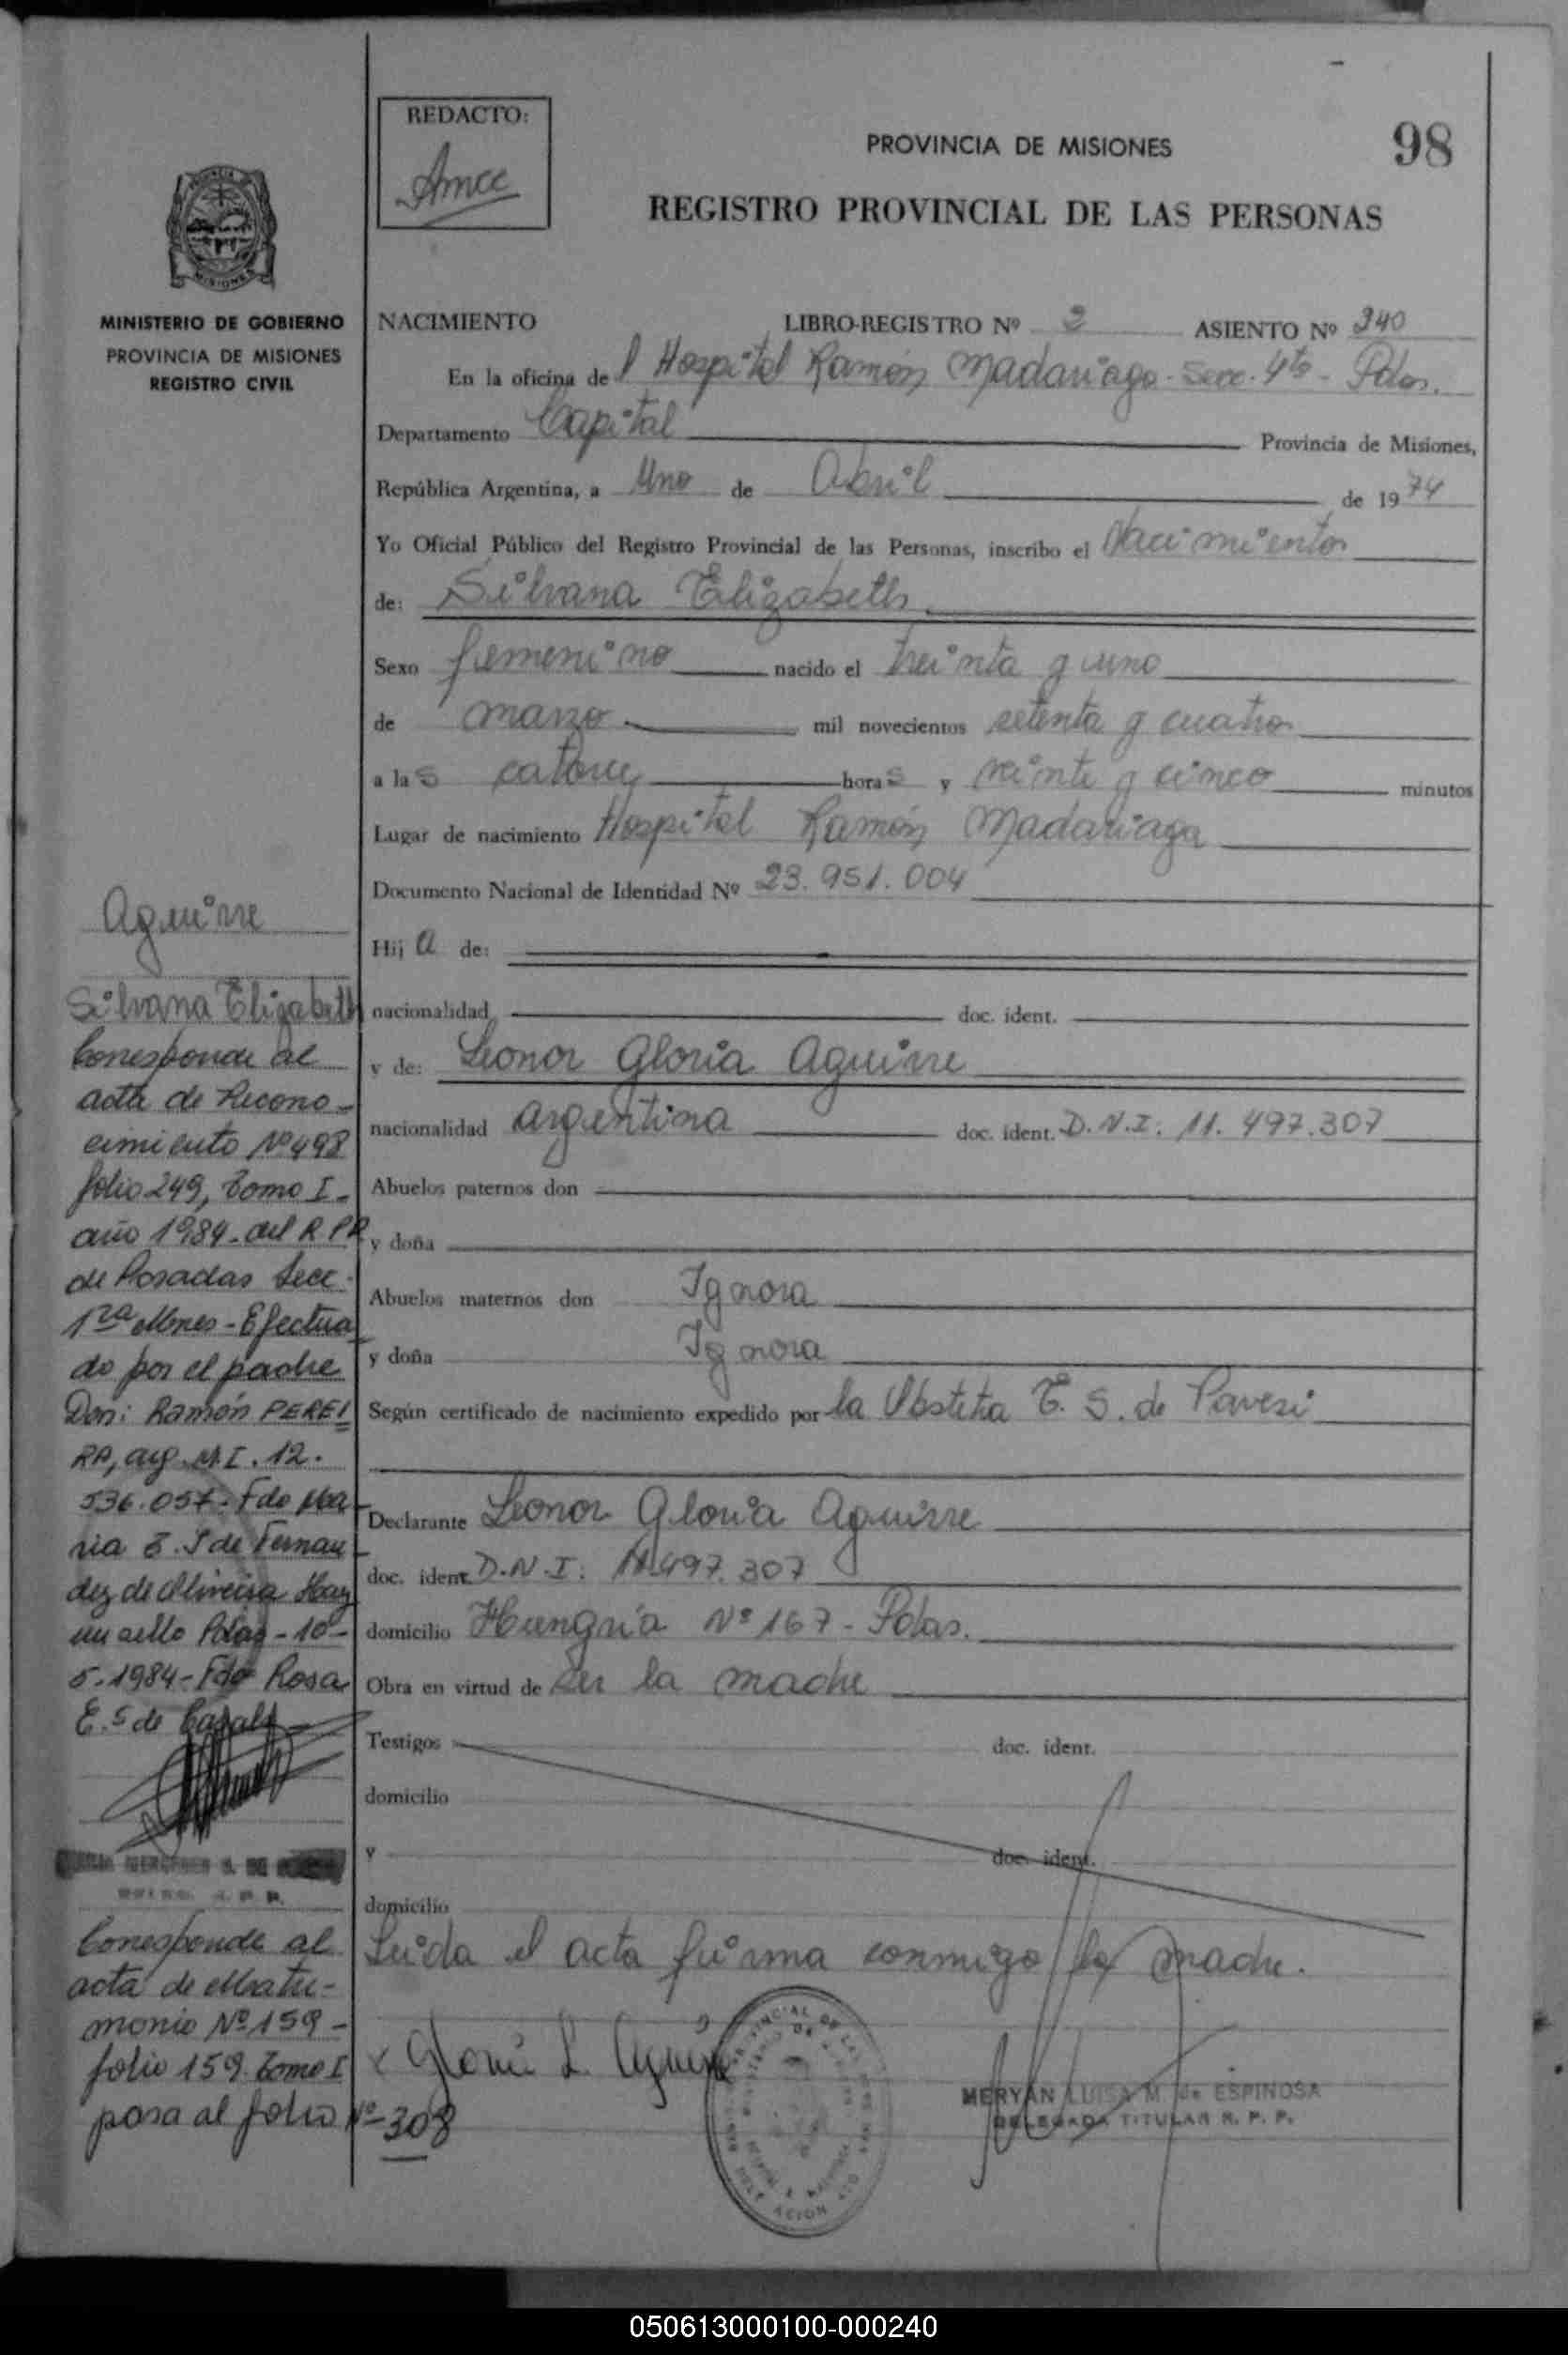 REDACTO:
Amce
PROVINCIA DE MISIONES
98
REGISTRO PROVINCIAL DE LAS PERSONAS
MISIONES
MINISTERIO DE GOBIERNO
PROVINCIA DE MISIONES
REGISTRO CIVIL
NACIMIENTO LIBRO-REGISTRO Nº 2 ASIENTO Nº 240
En la oficina de l Hospital Ramón Madariaga - Secc. 4ta - Pdas.
Departamento Capital Provincia de Misiones,
República Argentina, a Uno de Abril de 1974
Yo Oficial Público del Registro Provincial de las Personas, inscribo el Nacimiento
de: Silvana Elizabeth
Sexo femenino nacido el treinta y uno
de marzo mil novecientos setenta y cuatro
a las catorce horas y veinte y cinco minutos
Lugar de nacimiento Hospital Ramón Madariaga
Documento Nacional de Identidad Nº 23.951.004
Hija de:
nacionalidad doc. ident.
y de: Leonor Gloria Aguirre
nacionalidad argentina doc. ident. D.N.I. 11.497.307
Abuelos paternos don
y doña
Abuelos maternos don Ignora
y doña Ignora
Según certificado de nacimiento expedido por la Obstetra E. S. de Pavesi
Declarante Leonor Gloria Aguirre
doc. ident. D.N.I. 11.497.307
domicilio Hungría Nº 167 - Pdas.
Obra en virtud de ser la madre
Testigos doc. ident.
domicilio
y doc. ident.
domicilio
Leida el acta firma conmigo la madre.
x Gloria L. Aguirre
MERYAN LUISA M. de ESPINOSA
DELEGADA TITULAR R. P. P.
Aguirre
Silvana Elizabeth
Corresponde al
acta de Recono-
cimiento Nº 498
folio 249, Tomo I-
año 1984- del R.P.P.
de Posadas Secc.
1ra Mnes - Efectua
do por el padre
Don: Ramón PEREI
RA, arg. M.I. 12.
536.057. Fdo Ma
ria E. S de Fernan
dez de Oliveira Hay
un sello Pdas - 10-
5-1984- Fdo Rosa
E. S de Casals
Corresponde al
acta de Matri-
monio Nº 159 -
folio 159. Tomo I
pasa al folio Nº 308
050613000100-000240